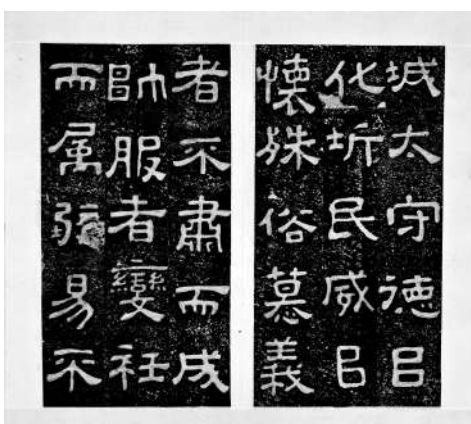 城太守德㠯
化圻民威㠯
懷殊俗慕義
者不肅而成
帥服者變衽
而属易不